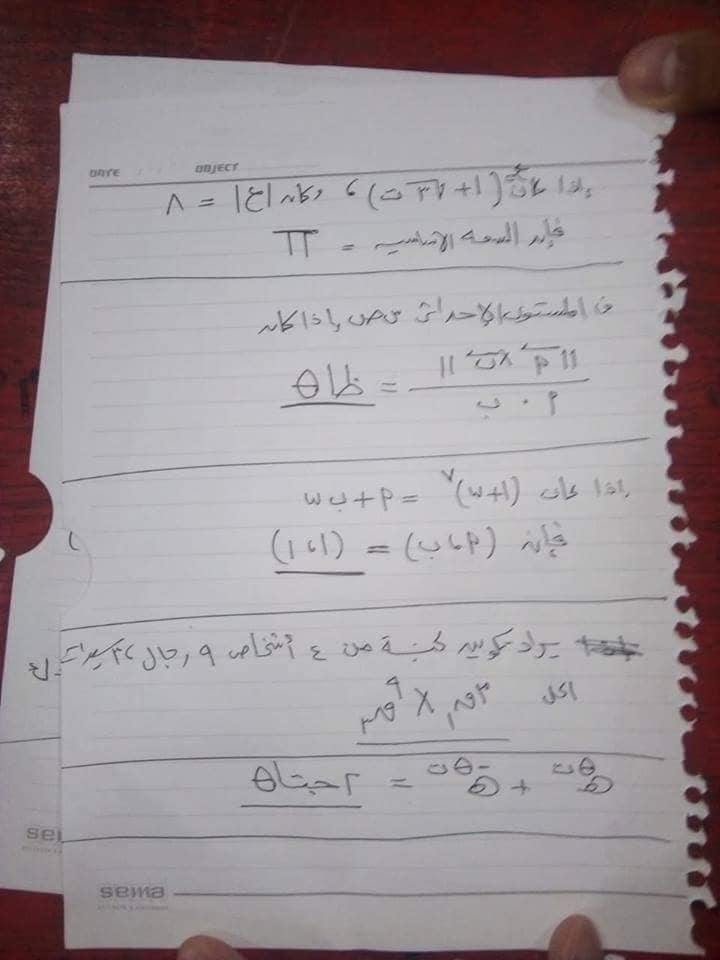 DATE OBJECT
إذا كان (١+√٣ ت) ، وكان |ع| = ٨
فإن السعة الأساسية = π
في المستوى الإحداثي س ص إذا كان
|| أ × ب || / أ . ب = ظا θ
إذا كان (١+w)^٧ = أ + ب w
فإن (أ ، ب) = (١ ، ١)
يراد تكوين لجنة من ٤ أشخاص ٩ رجال ، ٣ سيدات
الحل ٣ق١ × ٩ق٣
هـ^θت + هـ^-θت = ٢ جتا θ
sema
sema